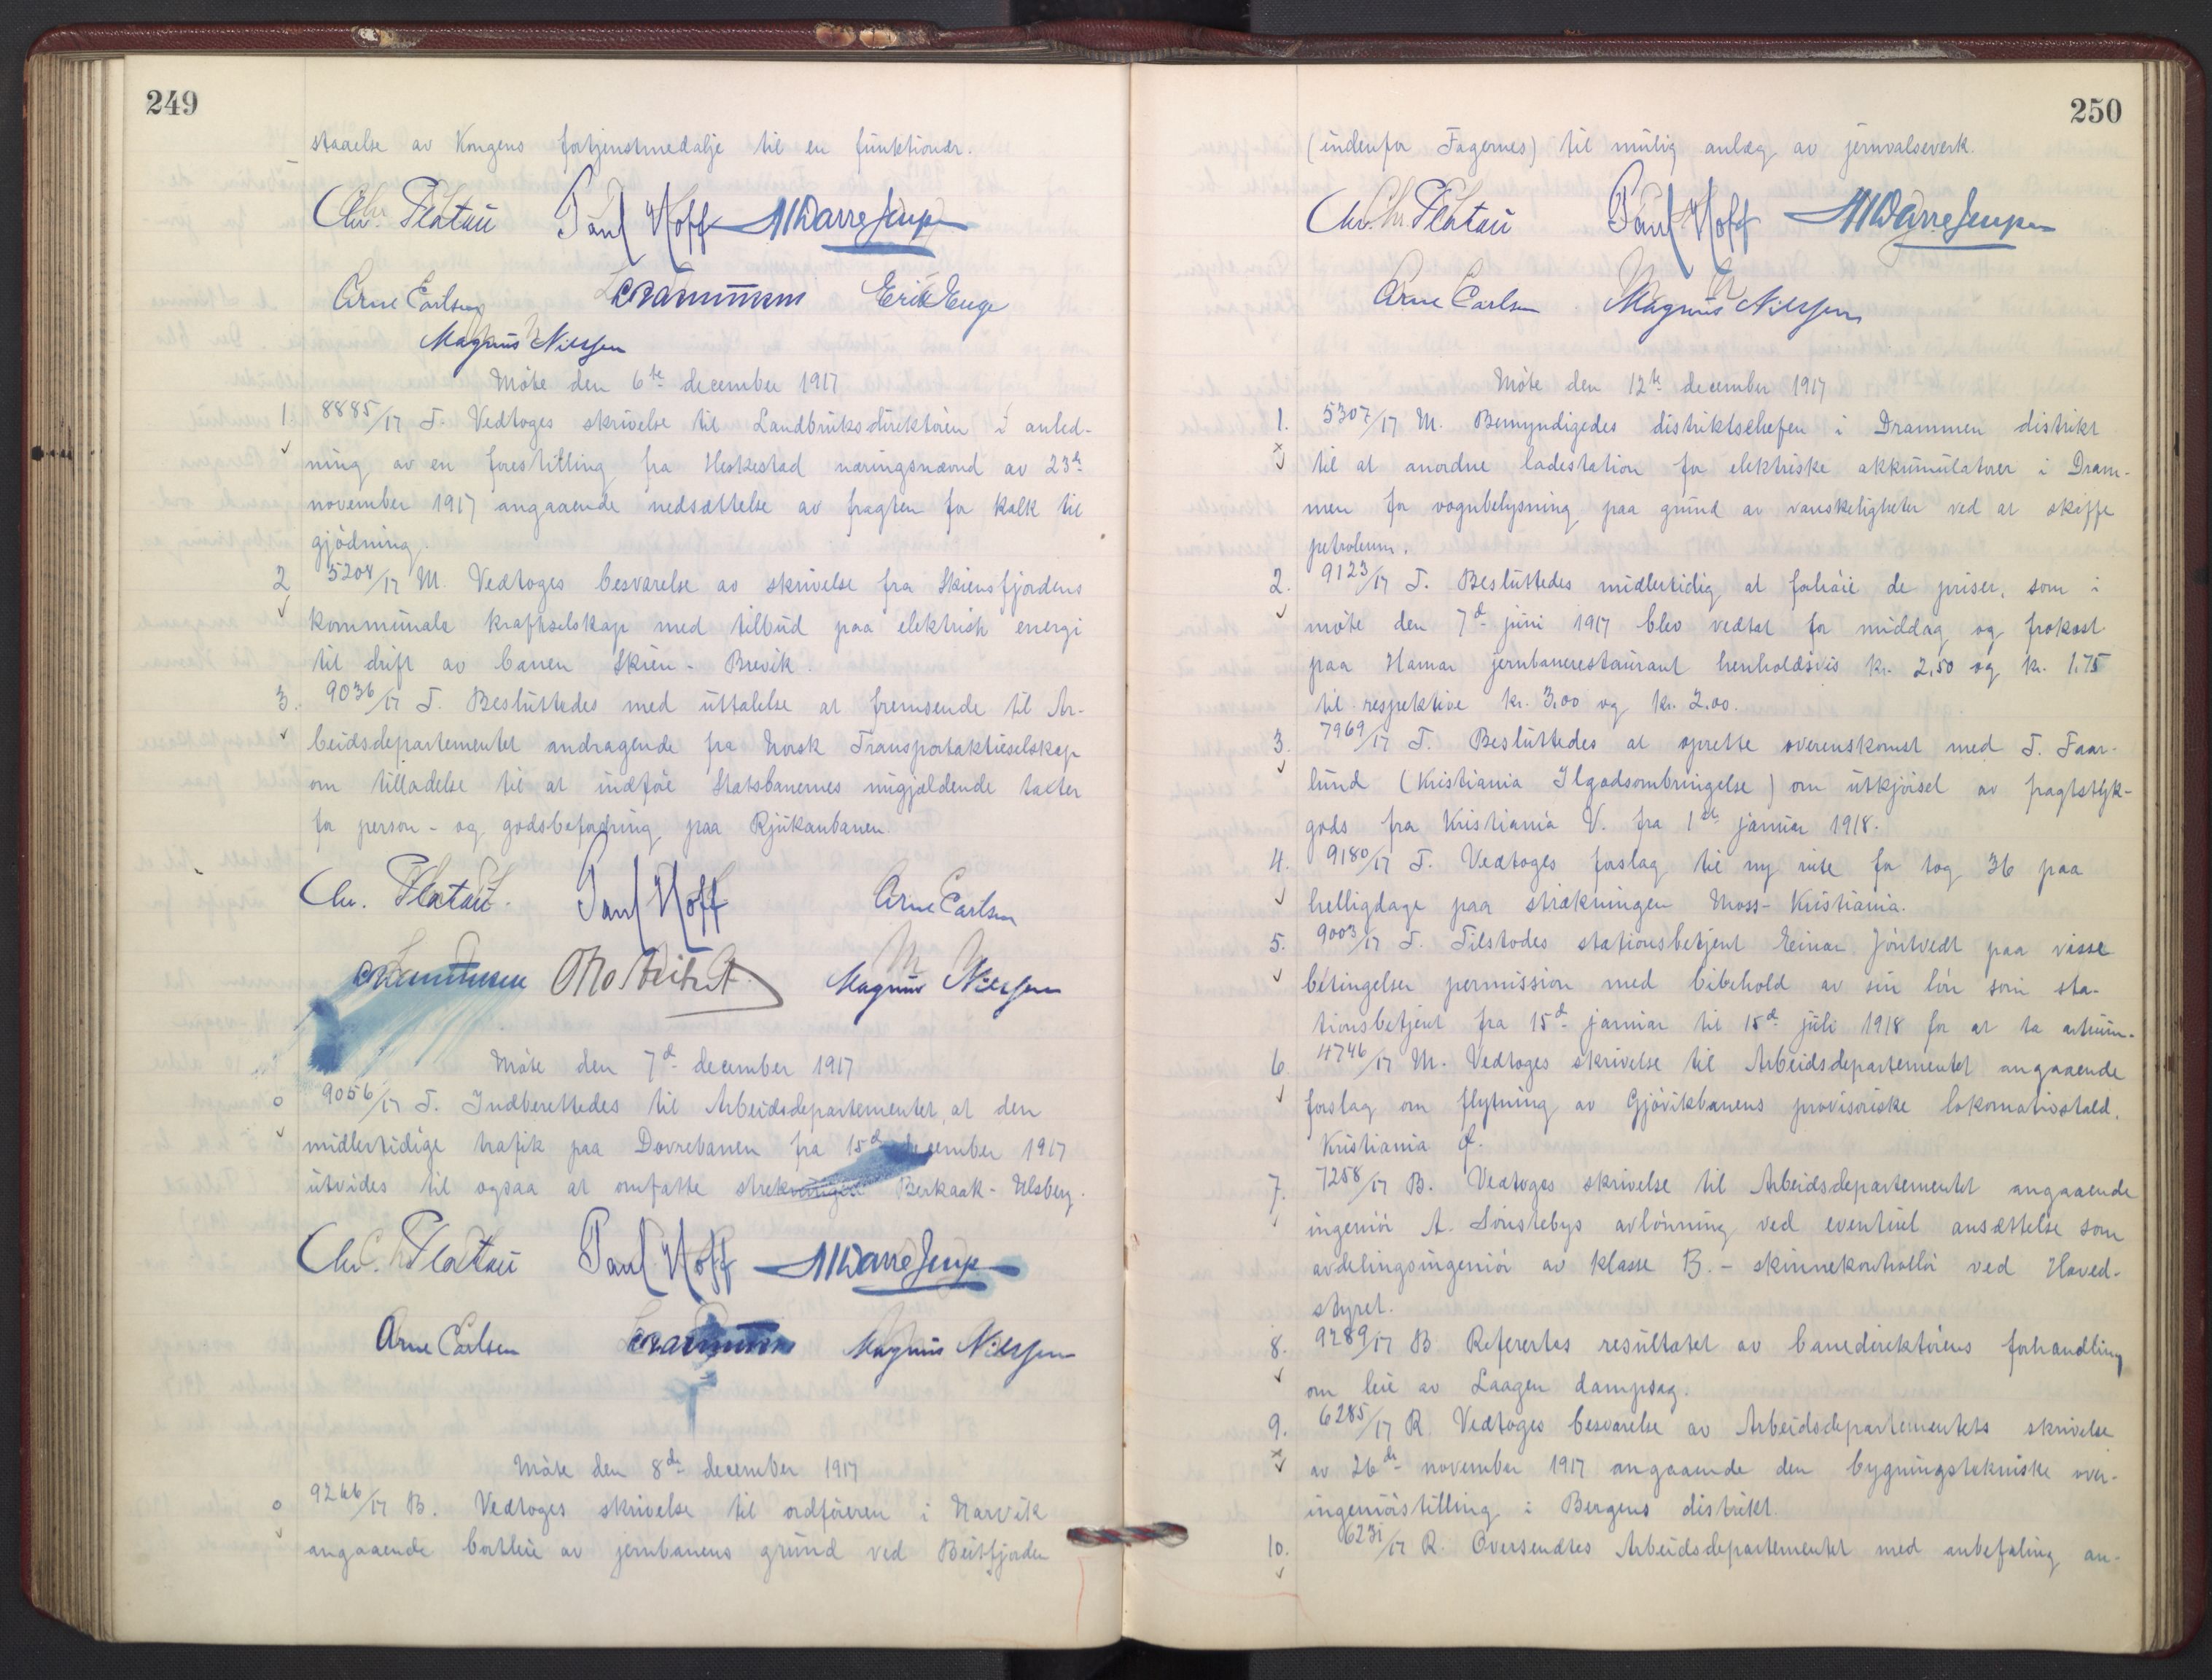 249
staaelse av Kongens fortjenstmedalje til en funktionær.
Chr. Platou Paul Hoff
Arne Carlsen C Rasmussen Erik Enge
Magnus Nilssen
Möte den 6te december 1917
1. 8885/17 T. Vedtoges skrivelse til Landbruksdirektören i anled-
ning av en forestilling fra Heskestad næringsnævnd av 23de
november 1917 angaaende nedsættelse av fragten for kalk til
gjödning.
2. 5204/17 M. Vedtoges besvarelse av skrivelse fra Skiensfjordens
kommunale kraftselskap med tilbud paa elektrisk energi
til drift av banen Skien - Brevik.
3. 9036/17 T. Besluttedes med uttalelse at fremsende til Ar-
beidsdepartementet andragende fra Norsk Transportaktieselskap
om tilladelse til at indföre Statsbanernes nugjældende taxter
for person- og godsbefordring paa Rjukanbanen.
Chr. Platou. Paul Hoff Arne Carlsen
C Rasmussen Magnus Nilssen
Möte den 7de december 1917
o 9056/17 T. Indberettedes til Arbeidsdepartementet, at den
midlertidige trafik paa Dovrebanen fra 15de december 1917
utvides til ogsaa at omfatte strekningen Berkaak - Ulsberg.
Chr. Platou Paul Hoff
Arne Carlsen C Rasmussen Magnus Nilssen
Möte den 8de december 1917
o 9266/17 B. Vedtoges skrivelse til ordföreren i Narvik
angaaende bortleie av jernbanens grund ved Beisfjorden
250
(indenfor Fagernes) til mulig anlæg av jernvalseverk.
Chr. Platou Paul Hoff
Arne Carlsen Magnus Nilssen
Möte den 12te december 1917
1. 5307/17 M. Bemyndigedes distriktschefen i Drammen distrikt
til at anordne ladestation for elektriske akkumulatorer i Dram-
men for vognbelysning paa grund av vanskeligheter ved at skaffe
petroleum.
2. 9123/17 T. Besluttedes midlertidig at forhöie de priser, som i
möte den 7de juni 1917 blev vedtat for middag og frokost
paa Hamar jernbanerestaurant henholdsvis kr. 2,50 og kr. 1,75
til respektive kr. 3,00 og kr. 2,00.
3. 7969/17 T. Besluttedes at oprette overenskomst med T. Faar-
lund (Kristiania Ilgodsombringelse) om utkjörsel av fragtstyk-
gods fra Kristiania V. fra 1ste januar 1918.
4. 9180/17 T. Vedtoges forslag til ny rute for tog 36 paa
helligdage paa strækningen Moss - Kristiania.
5. 9003/17 T. Tilstodes stationsbetjent Einar Jöntvedt paa visse
betingelser permission med bibehold av sin lön som sta-
tionsbetjent fra 15de januar til 15de juli 1918 for at ta artium.
6. 4746/17 M. Vedtoges skrivelse til Arbeidsdepartementet angaaende
forslag om flytning av Gjövikbanens provisoriske lokomotivstald.
Kristiania Ø.
7. 7258/17 B. Vedtoges skrivelse til Arbeidsdepartementet angaaende
ingeniör A. Sönstebys avlönning ved eventuel ansættelse som
avdelingsingeniör av klasse B. - skinnekontrollör ved Hoved-
styret.
8. 9289/17 B. Refererttes resultatet av banedirektörens forhandling
om leie av Laagen dampsag.
9. 6285/17 R. Vedtoges besvarelse av Arbeidsdepartementets skrivelse
av 26de november 1917 angaaende den bygningstekniske over-
ingeniörstilling i Bergens distrikt.
10. 6231/17 R. Oversendtes Arbeidsdepartementet med anbefaling an-